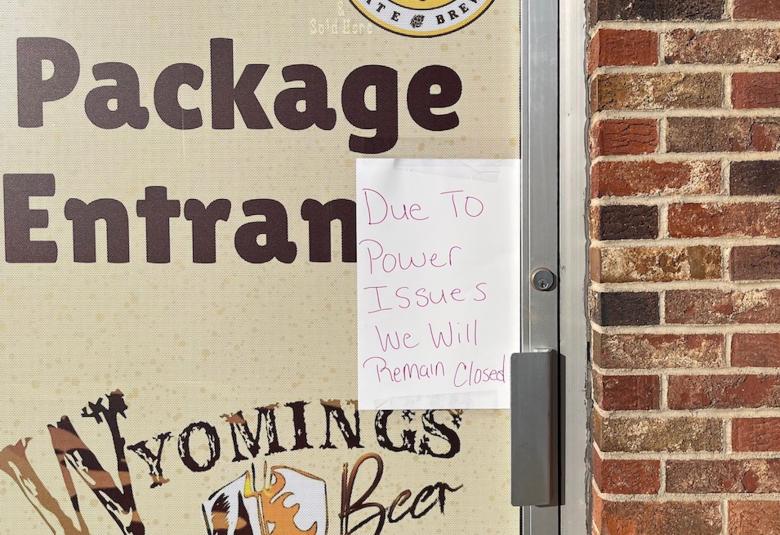 &
Sold Here
Package
Entran
Due To
Power
Issues
We Will
Remain Closed
WYOMINGS
Beer